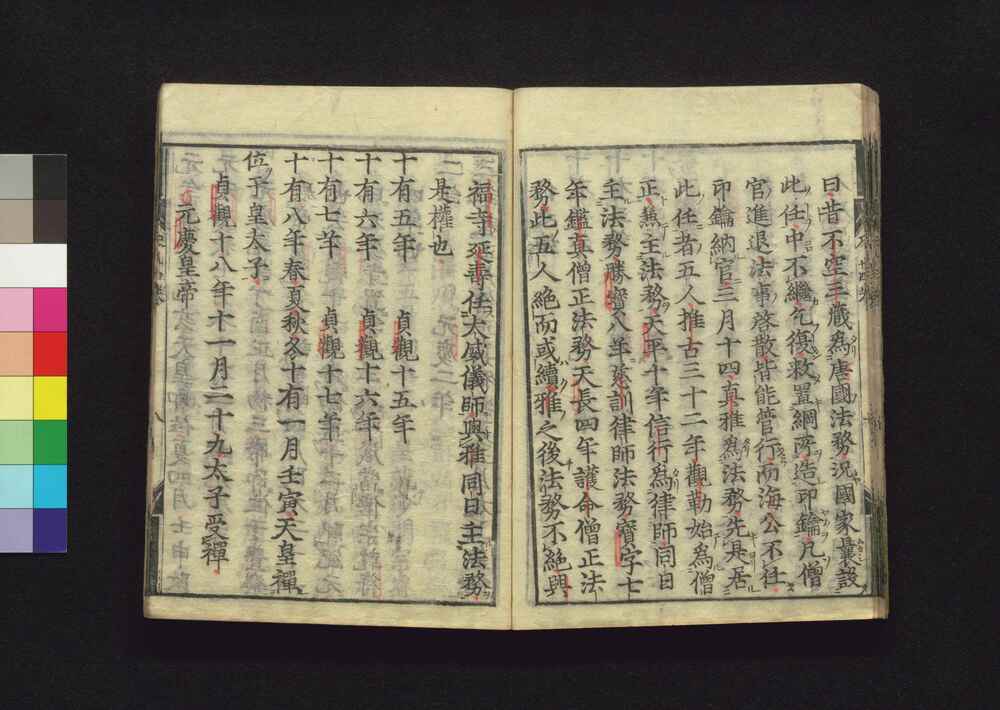 曰昔不空三藏為唐國法務況國家曩設
此任中不繼乞復救置綱所造印鑰凡僧
官進退法事啓散皆能管行而海公不任
印鑰納官三月十四真雅為法務先是居
此任者五人推古三十二年觀勒始為僧
正兼主法務天平十年信行為律師同日
主法務勝寶八年慈訓律師法務寶字七
年鑑真僧正法務天長四年護命僧正法
務此五人絕而或續雅之後法務不絕興
福寺延壽任大威儀師與雅同日主法務
是權也
十有五年 貞觀十五年
十有六年 貞觀十六年
十有七年 貞觀十七年
十有八年春夏秋冬十有一月壬寅天皇禪
位于皇太子
貞觀十八年十一月二十九太子受禪
元慶皇帝